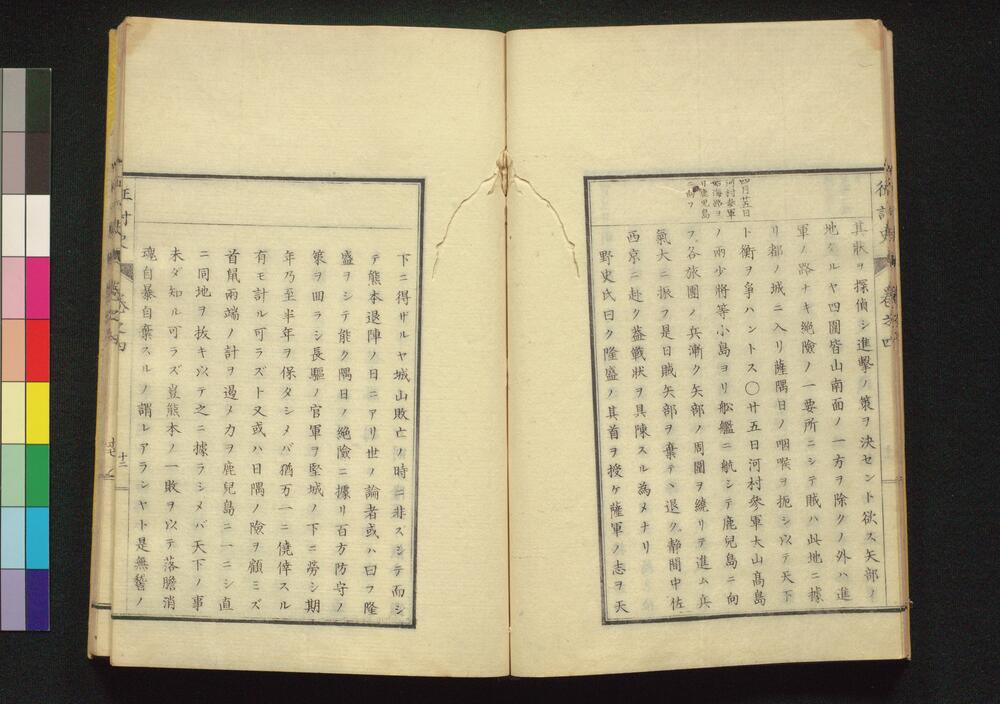 其狀ヲ探偵シ進擊ノ策ヲ決セント欲ス矢部ノ
地タルヤ四圍皆山南面ノ一方ヲ除クノ外ハ進
軍ノ路ナキ絕險ノ一要所ニシテ賊ハ此地ニ據
リ都ノ城ニ入リ薩隅日ノ咽喉ヲ扼シ以テ天下
ト衡ヲ爭ハントス〇廿五日河村參軍大山髙島
ノ兩少將等小島ヨリ舩艦ニ航シテ鹿兒島ニ向
フ各旅團ノ兵漸ク矢部ノ周圍ヲ繞リテ進ム兵
氣大ニ振フ是日賊矢部ヲ棄テヽ退ク靜間中佐
西京ニ赴ク葢戰狀ヲ具陳スル為メナリ
野史氏曰ク隆盛ノ其首ヲ授ケ薩軍ノ志ヲ天
四月廿五日
河村參軍
海路ヲ
リ鹿児島
ニ向フ
下ニ得ザルヤ城山敗亡ノ時ニ非ズシテ而シ
テ熊本退陣ノ日ニアリ世ノ論者或ハ曰フ隆
盛ヲシテ能ク隅日ノ絶險ニ據リ百方防守ノ
策ヲ回ラシ長驅ノ官軍ヲ堅城ノ下ニ勞シ期
年乃至半年ヲ保タシメバ猶万一ニ僥倖スル
有モ計ル可ラズト又或ハ日隅ノ險ヲ顧ミズ
首鼠兩端ノ計ヲ過メ力ヲ鹿兒島ニ一ニシ直
ニ同地ヲ拔キ以テ之ニ據ラシメバ天下ノ事
未ダ知ル可ラズ豈熊本ノ一敗ヲ以テ落膽消
魂自暴自棄スルノ謂レアランヤト是無稽ノ
卷之四
十二